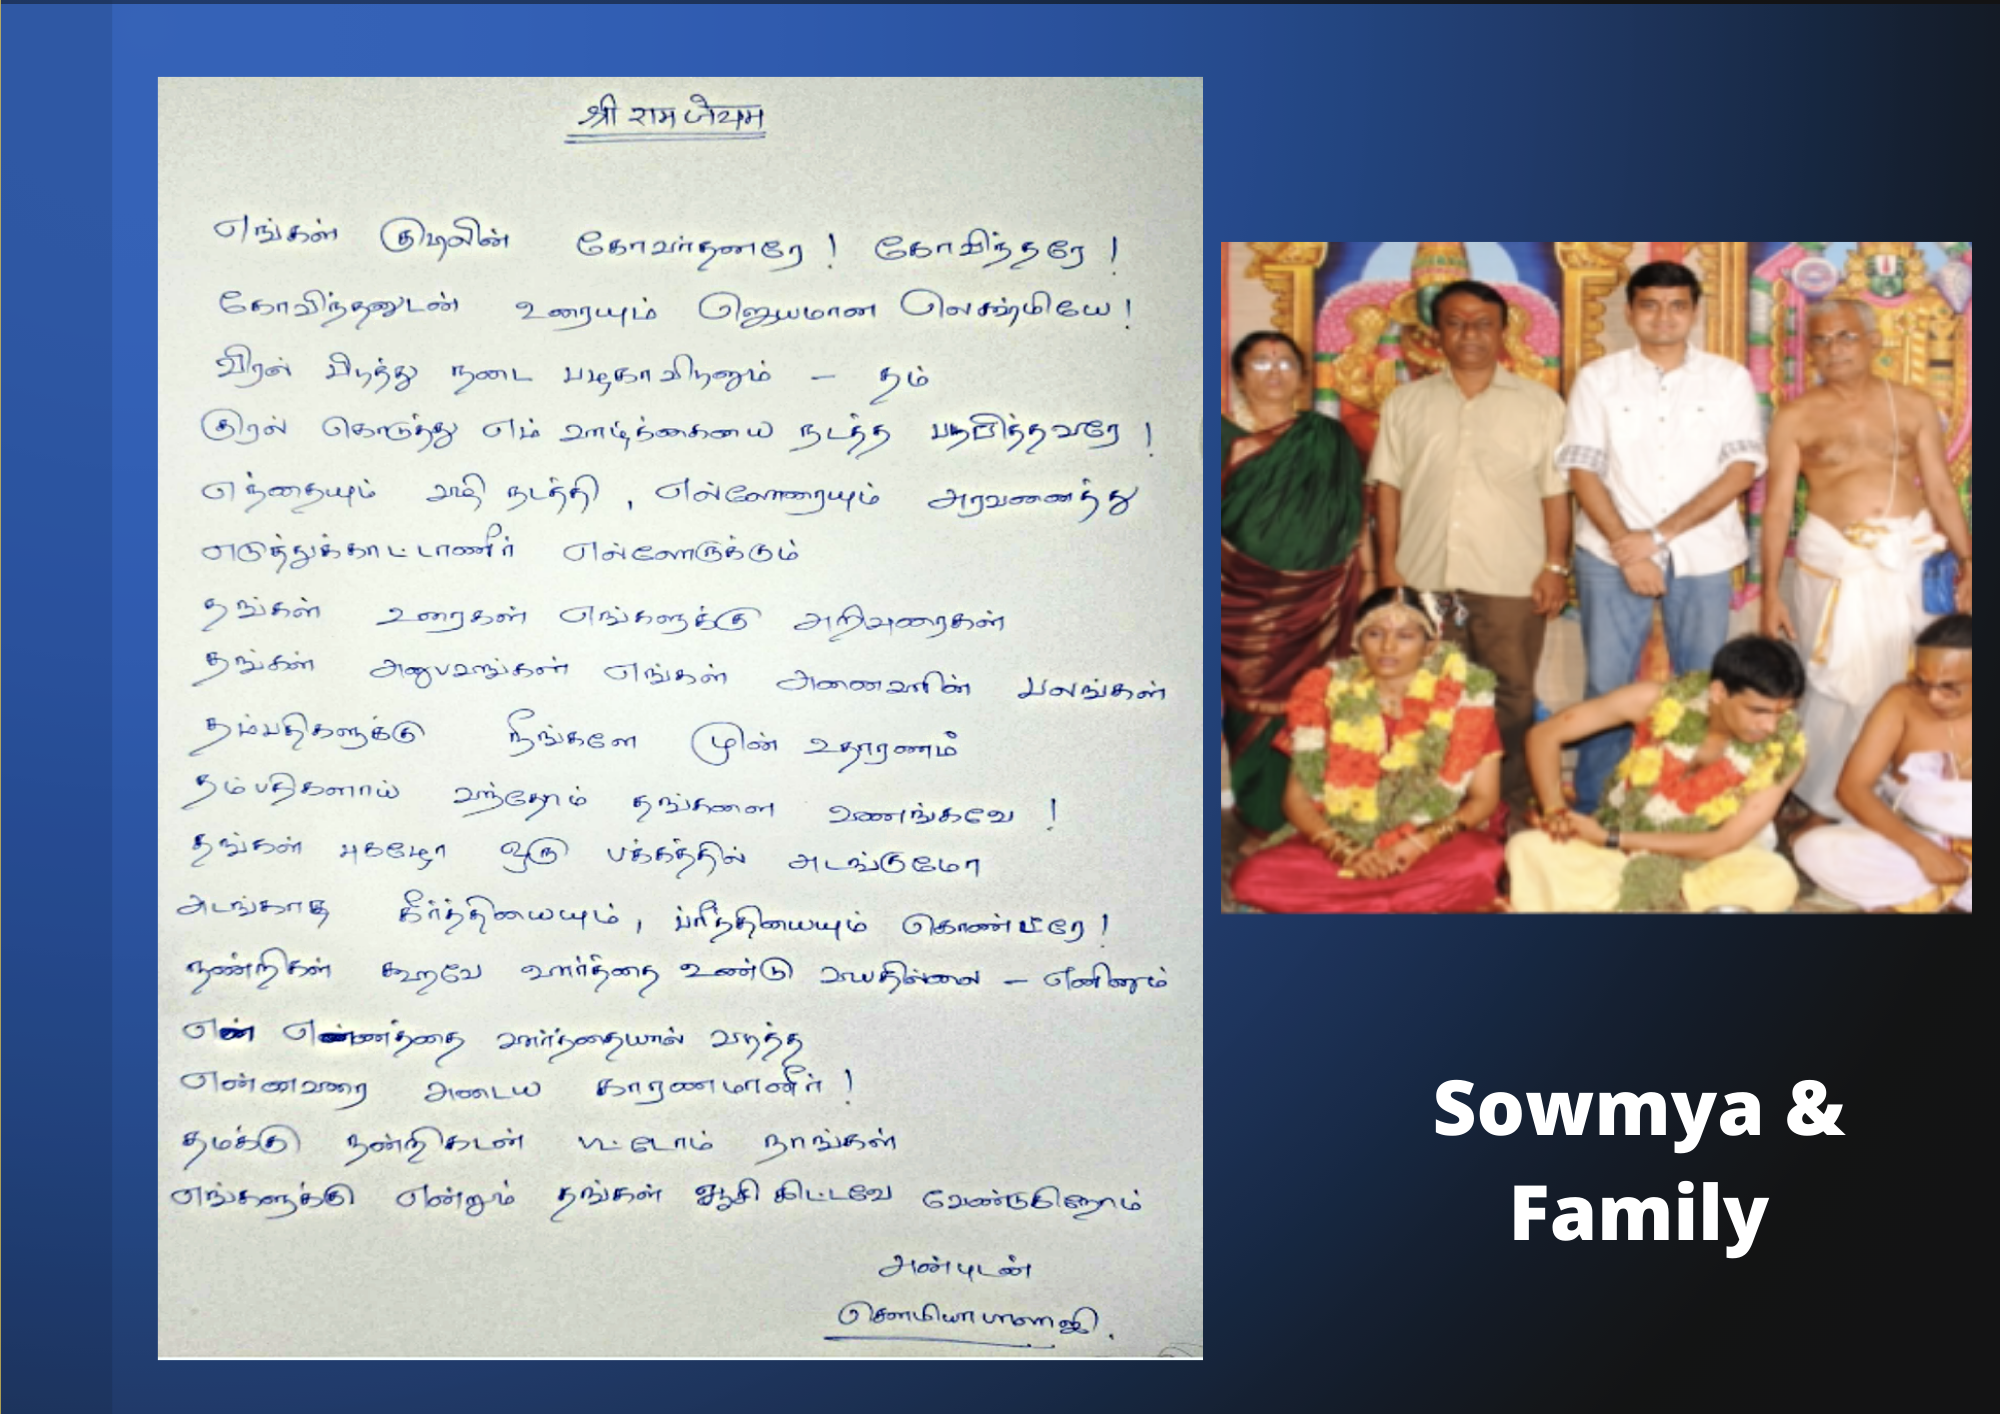 श्री राम जेयम
எங்கள் குடிலின் கோவர்தனரே ! கோவிந்தரே !
கோவிந்தனுடன் உரையும் ஜெயமான லெக்ஷ்மியே !
விரல் பிடித்து நடை படிகாவிடினும் – தம்
குரல் கொடுத்து எம் வாழ்க்கையை நடத்த பதபித்தவரே !
எந்தையும் வழி நடத்தி , எல்லோரையும் அரவணைத்து
எடுத்துக்காட்டானீர் எல்லோருக்கும்
தங்கள் உரைகள் எங்களுக்கு அறிவுரைகள்
தங்கள் அனுபவங்கள் எங்கள் அனைவரின் பலங்கள்
தம்பதிகளுக்கு நீங்களே முன் உதாரணம்
தம்பதிகளாய் வந்தோம் தங்களை வணங்கவே !
தங்கள் புகழோ ஒரு பக்கத்தில் அடங்குமோ
அடங்காத கீர்த்தியையும் , ப்ரீத்தியையும் கொண்டீரே !
நன்றிகள் கூறவே வார்த்தை உண்டு வயதில்லை – எனினும்
என் எண்ணத்தை வார்த்தையால் வடித்த
என்னவரை அடைய காரணமானீர் !
தமக்கு நன்றிகடன் பட்டோம் நாங்கள்
எங்களுக்கு என்றும் தங்கள் ஆசி கிட்டவே வேண்டுகிறோம்
அன்புடன்
சௌமியா பாலாஜி .
Sowmya &
Family